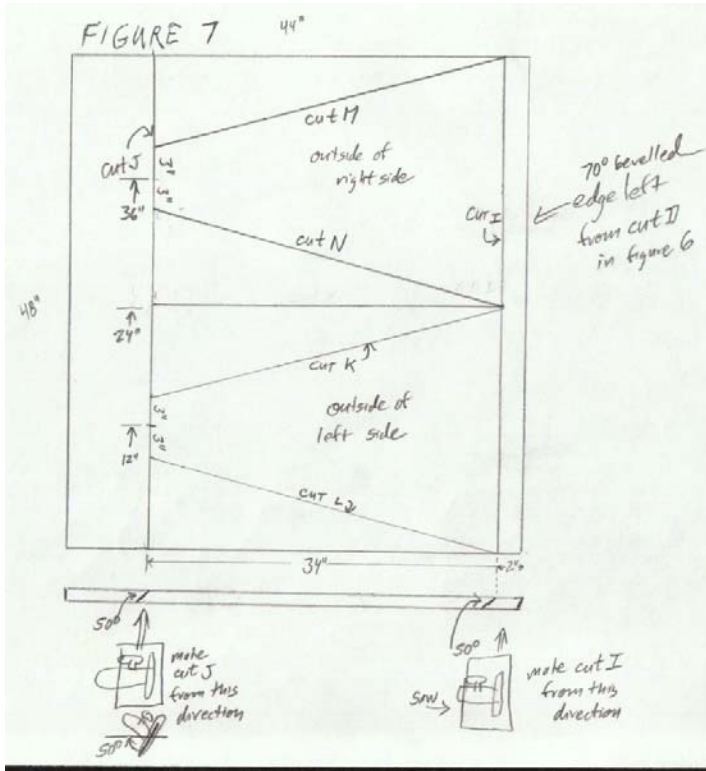 FIGURE 7
44"
cut M
outside of
right side
cut J
3"
3"
36"
70° bevelled
edge left
from cut D
in figure 6
cut I
cut N
48"
24"
cut K
outside of
left side
3"
3"
12"
cut L
34"
2"
50°
50°
make
cut J
from this
direction
50°
saw
make cut I
from this
direction